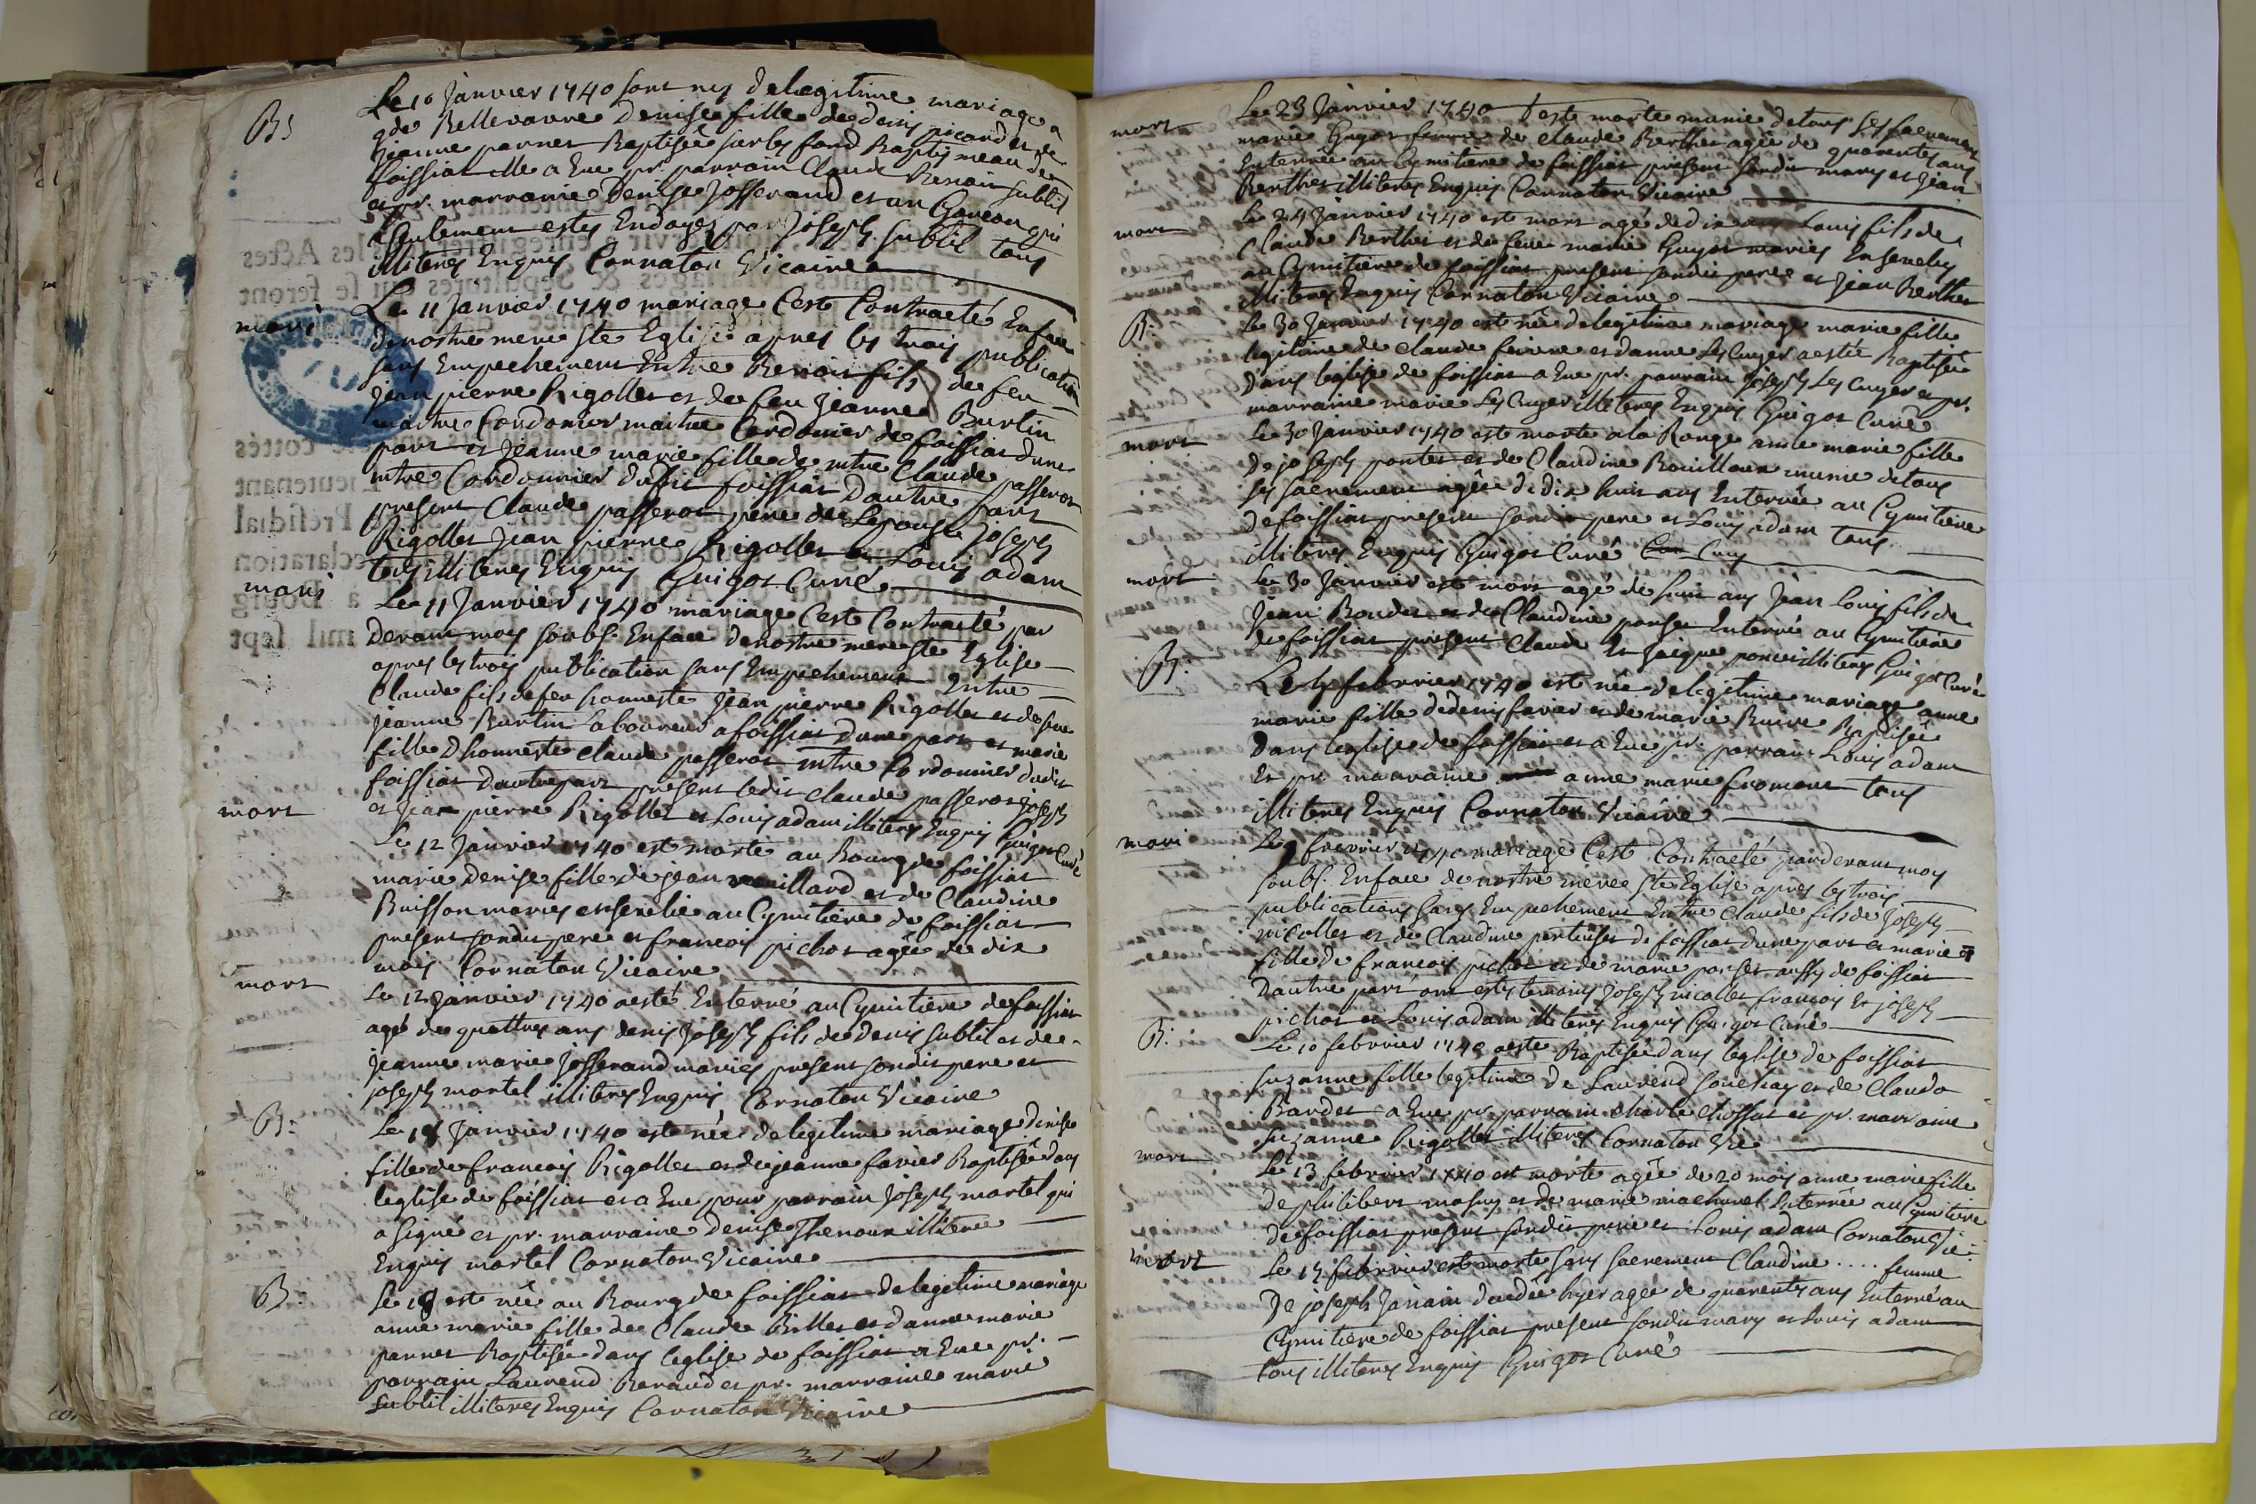 Bs
Le 10 Janvier 1740 sont nes de legitime mariage a
Bellevavre Denise fille de denis picard et de
jeanne pannet Baptisée sur les fond Baptismeau de
foissiat elle a Eue pr. parrain Claude Benoit subtil
et pr. marraine Denise Josserand et un Garcon qui
seulement estes Endoyés par Joseph subtil tous
illiterés Enquis Cornaton Vicaire
mari
Le 11 Janvier 1740 mariage C'est Contracté En face
de nostre mere ste Eglise apres les trois publication
sans Empechement Entre Benoit fils de feu
Jean pierre Rigollet et de feu Jeanne Burtin
maitre Cordonier maitre Cordonier de foissiat d'une
part et Jeanne marie fille de mtre Claude passerot
mtre Cordonnier dudit foissiat d'autre part
present Claude passerot pere de L'epouse joseph
Rigollet Jean pierre Rigollet et Louis adam
tous illiteres Enquis Guigot Curé
mari
Le 11 Janvier 1740 mariage C'est Contracté par
devant moy soubs. En face de nostre mere ste Eglise
apres les trois publication sans Empechement Entre
Claude fils de feu honneste Jean pierre Rigollet et de feue
Jeanne Burtin Laboureur a foissiat d'une part et marie
fille D'honneste Claude passerot mtre Cordonnier dudit
foissiat D'autre part present ledit Claude passerot joseph
et Jean pierre Rigollet et Louis adam illiteres Enquis Guigot Curé
mort
Le 12 Janvier 1740 est morte au Bourg de foissiat
marie denise fille de jean et de Claudine
Buisson mariés ensevelie au Cymitière de foissiat
present sondit pere et francois pichot agée de dix
mois Cornaton Vicaire
mort
Le 12 Janvier 1740 a esté Enterré au Cymitière de foissiat
agé de quattres ans denis Joseph fils de Denis subtil et de
jeanne marie Josserand mariés present sondit pere et
joseph mortel illiteres Enquis Cornaton Vicaire
B:
Le 18 Janvier 1740 este née de legitime mariage denise
fille de francois Rigollet et de jeanne favier Baptisée dans
leglise de foissiat et a Eue pour parrain Joseph mortel qui
a signé et pr. marraine denise Thenoux illiterée
Enquis mortel Cornaton Vicaire
B:
Le 18 est née au Bourg de foissiat de legitime mariage
anne marie fille de Claude Billet et d'anne marie
pannet Baptisée dans leglise de foissiat a Eue pr.
parrain Laurend Beraud et pr. marraine marie
subtil illiteres Enquis Cornaton Vicaire
mort
Le 23 Janvier 1740 est morte munie de tous ses sacrements
marie Guyot femme de Claude Berthet agée de quarentes ans
Enterrée au Cymitière de foissiat present sondit mary et Jean
Berthet illiteres Enquis Cornaton Vicaire
mort
Le 24 Janvier 1740 est mort agé de dix ans Louis fils de
Claude Berthet et de feue marie Guyot mariés Ensevelis
au Cymitière de foissiat present sondit pere et Jean Berthet
illiteres Enquis Cornaton Vicaire
B:
Le 30 Janvier 1740 est née de legitime mariage marie fille
legitime de Claude feivre et d'anne Les Cuyer a estée Baptisée
dans leglise de foissiat a Eue pr. parrain joseph Les Cuyer et pr.
marraine marie Les Cuyer illiteres Enquis Guigot Curé
mort
Le 30 Janvier 1740 est morte a la Range anne marie fille
de joseph pontet et de Claudine Bouilloux munie de tous
ses sacrement agée de dix huit ans Enterrée au Cymitière
de foissiat present sondit pere et Louis adam tous
illiteres Enquis Guigot Curé
mort
Le 30 Janvier est mort agé de huit ans Jean Louis fils de
Jean Boudet et de Claudine ponset Enterré au Cymitière
de foissiat present Claude Et Jacque poncet illiteres Guigot Curé
B:
Le febvrier 1740 est née de legitime mariage anne
marie fille de denis favier et de marie Buire Baptisée
dans leglise de foissiat et a Eue pr. parrain Louis adam
Et pr. marraine anne marie froment tous
illiteres Enquis Cornaton Vicaire
mari
Le 9 fevrier 1740 mariage C'est Contracté par devant moy
soubs. En face de nostre mere ste Eglise apres les trois
publications sans Empechement Entre Claude fils de Joseph
nicollet et de Claudine pertuiset de foissiat d'une part et marie
fille de francois pichot et de marie ponset aussy de foissiat
d'autre part ont estes temoins joseph nicollet francois Et joseph
pichot et Louis adam illiteres Enquis Guigot Curé
B:
Le 10 febvrier 1740 a este Baptisée dans leglise de foissiat
suzanne fille legitime de Laurend souchay et de Claudo
Bardet a Eue pr. parrain charle chossat et pr. marraine
suzanne Rigollet illiteres Cornaton Vic
mort
Le 13 febvrier 1740 est morte agée de 20 moy anne marie fille
de philibert masuy et de marie machuret Enterrée au Cymitière
de foissiat present sondit pere et Louis adam Cornaton Vic:
mort
Le 15 febvrier est morte sans sacrement Claudine .... femme
De joseph Janain agée de quarentes ans Enterré au
Cymitière de foissiat present sondit mary et Louis adam
tous illiteres Enquis Guigot Curé